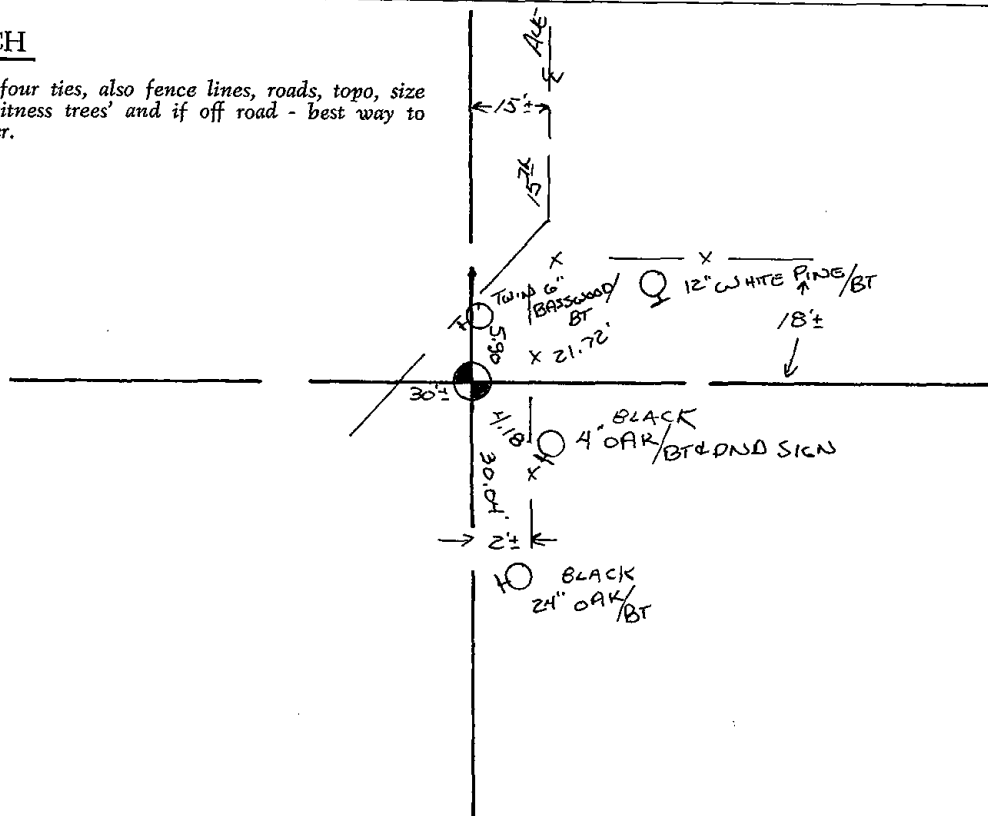 CH
four ties, also fence lines, roads, topo, size
itness trees' and if off road - best way to
r.
AVE
15'±
TWIN 6"
BASSWOOD/
BT
12" WHITE PINE/BT
18'±
5.90
21.72'
30'±
4.18
BLACK
4" OAK/BT & DND SIGN
30.04'
2'±
BLACK
24" OAK/BT